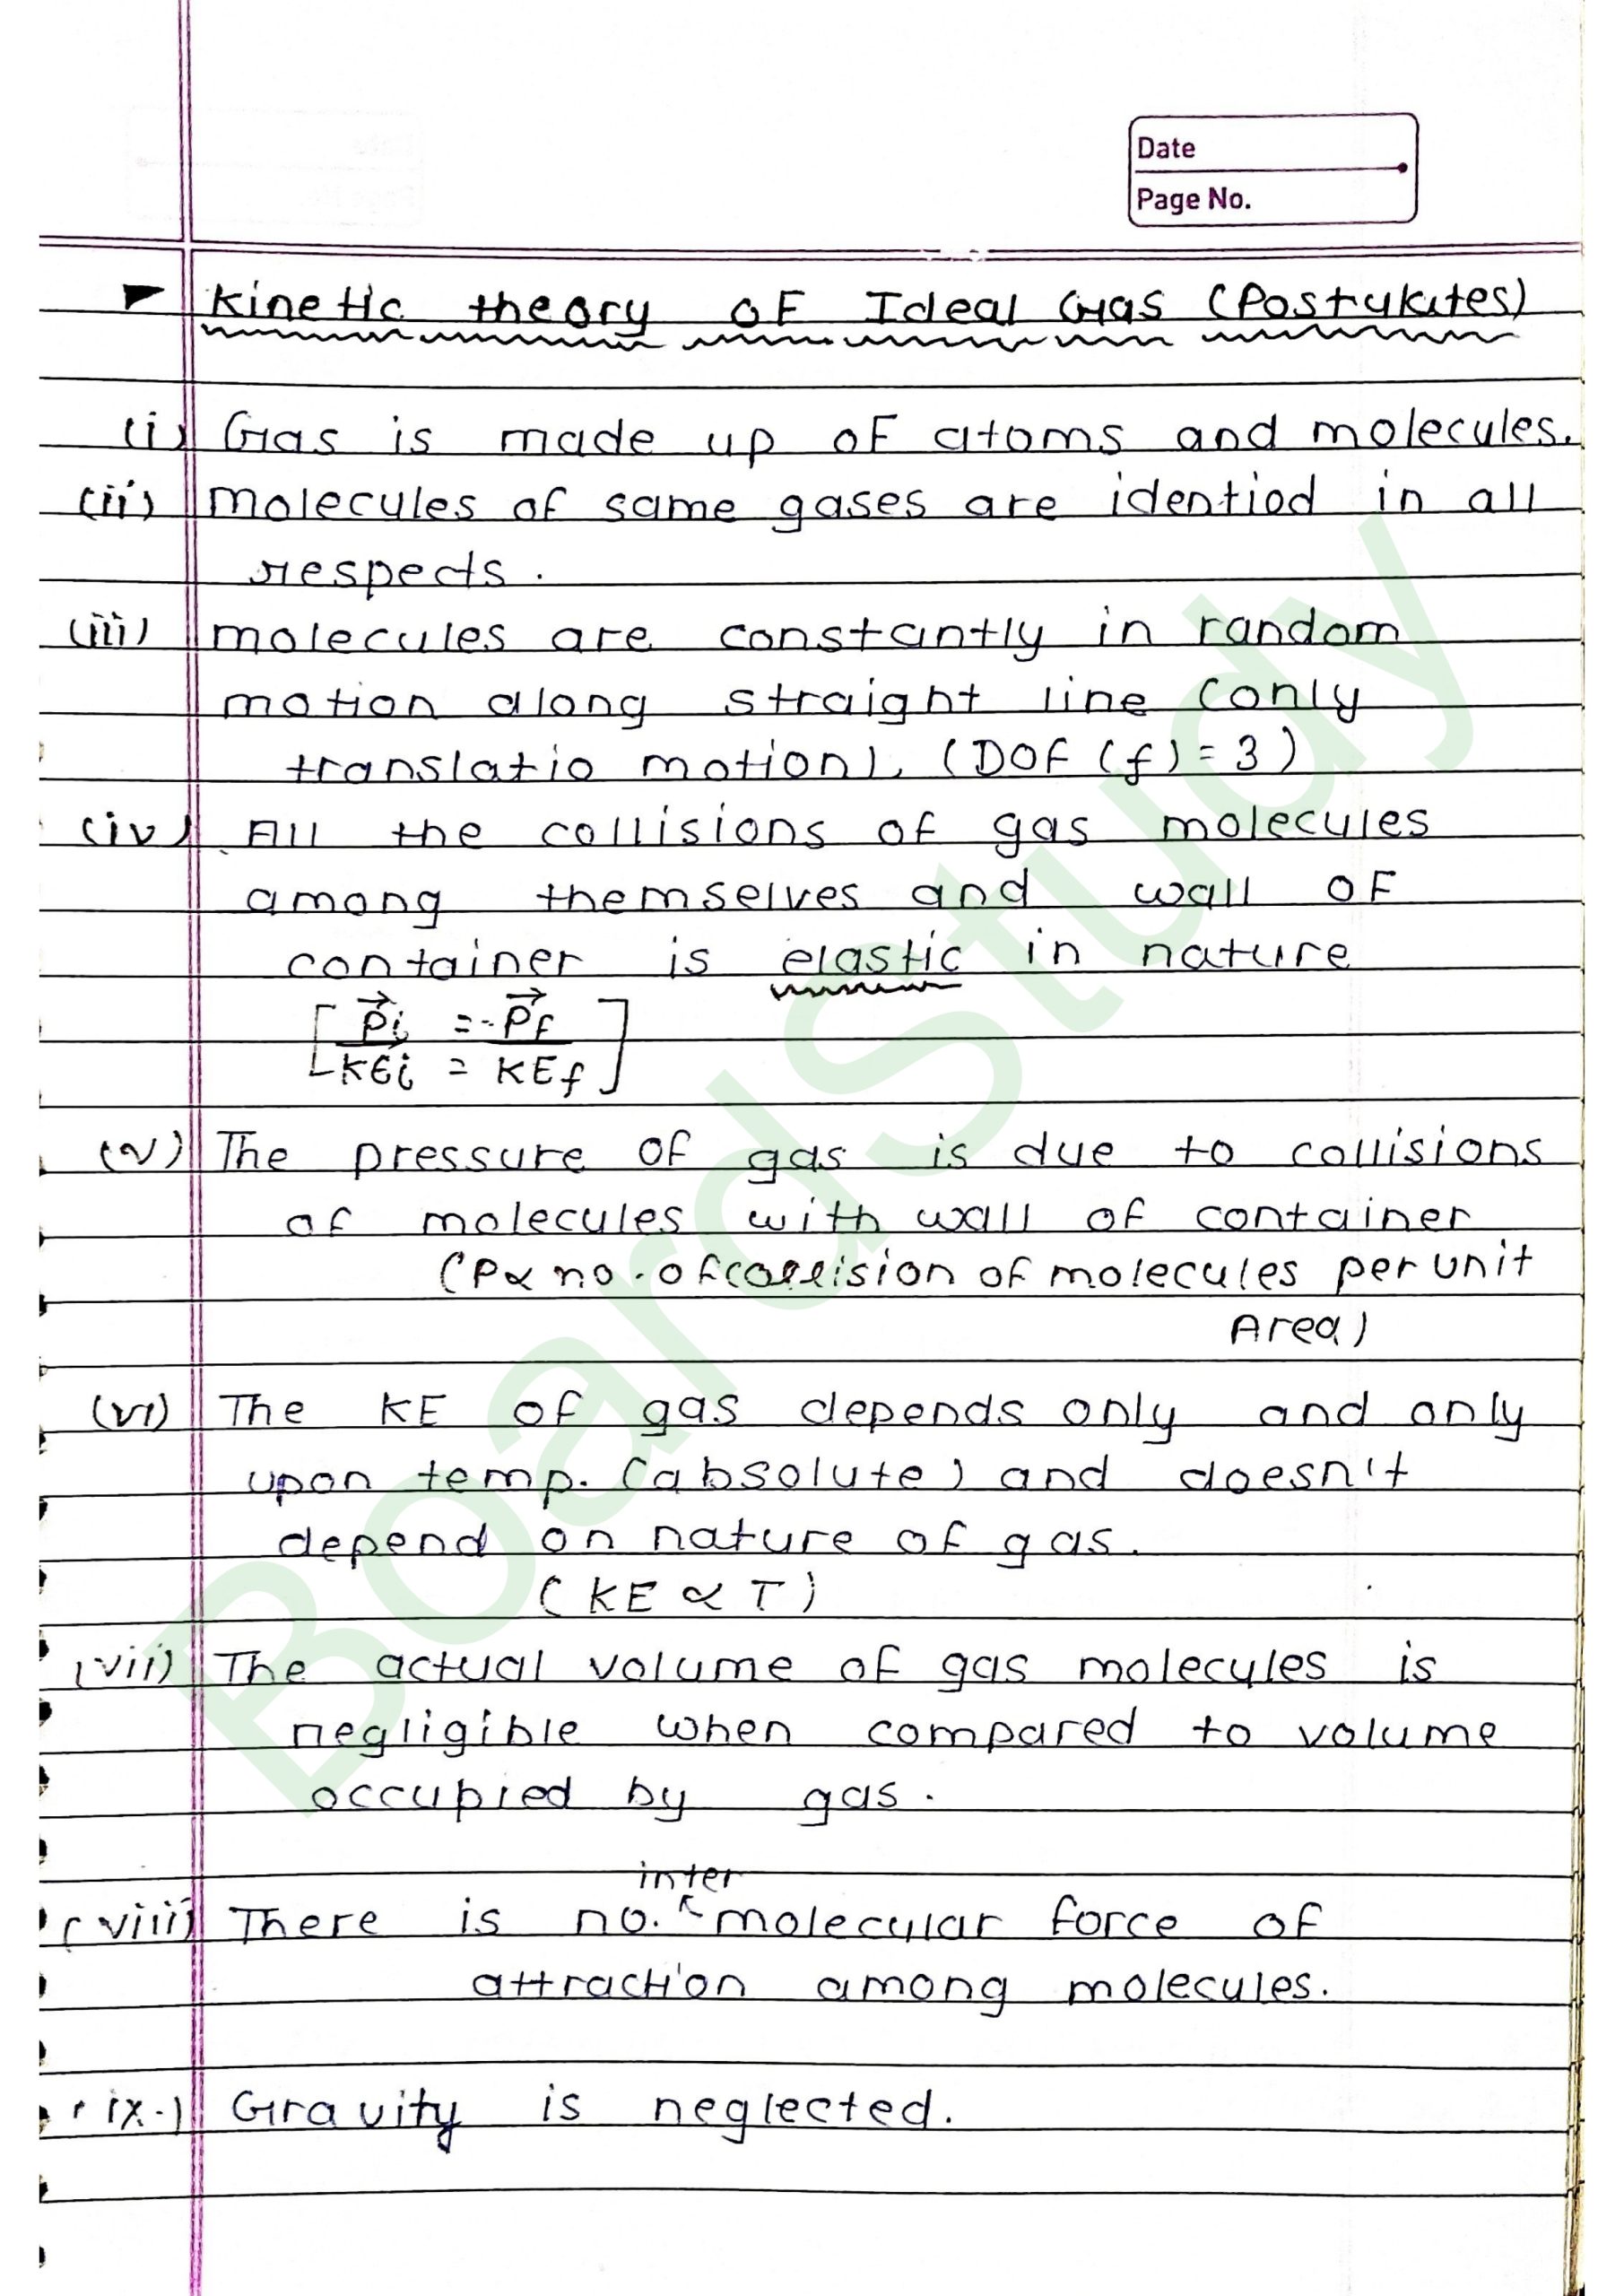 Date
Page No.
Kinetic theory of Ideal Gas (Postulates)
(i) Gas is made up of atoms and molecules.
(ii) molecules of same gases are identiod in all
respects.
(iii) molecules are constantly in random
motion along straight line (only
translatio motion). (DOF (f) = 3)
(iv) All the collisions of gas molecules
among themselves and wall of
container is elastic in nature
[P⃗i = -P⃗f
KEi = KEf]
(v) The pressure of gas is due to collisions
of molecules with wall of container
(P∝ no. of collision of molecules per unit
Area)
(vi) The KE of gas depends only and only
upon temp. (absolute) and doesn't
depend on nature of gas.
(KE ∝ T)
(vii) The actual volume of gas molecules is
negligible when compared to volume
occupied by gas.
inter
(viii) There is no. molecular force of
attraction among molecules.
(ix.) Gravity is neglected.
BoardStudy